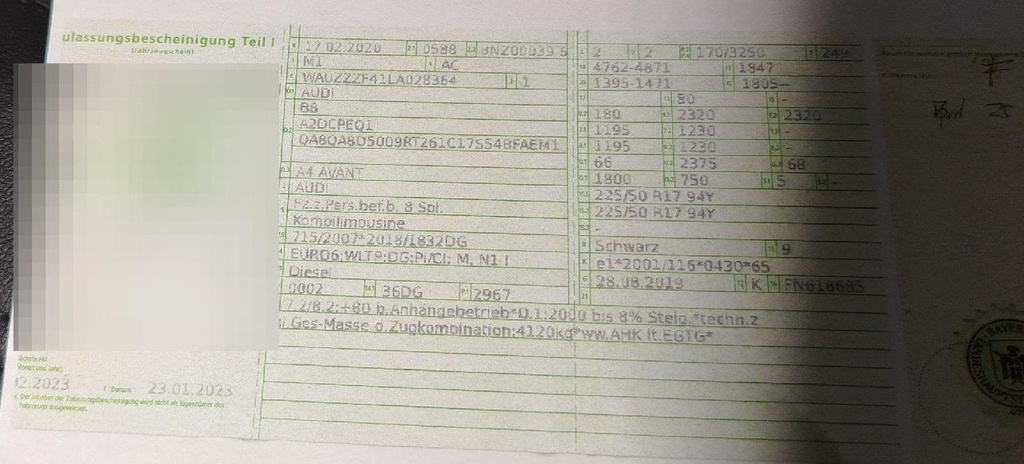 ulassungsbescheinigung Teil I
(Fahrzeugschein)
17.02.2020 2.1 0588 2.2 BNZ00039 6
M1 AC
WAUZZZF41LA028364 3 1
AUDI
B8
A2DCPEQ1
QA8QA8D5009RT261C17S54BFAEM1
A4 AVANT
AUDI
Fz.z.Pers.bef.b. 8 Spl.
Kombilimousine
715/2007*2018/1832DG
EURO6;WLTP;DG;PI/CI; M, N1 I
Diesel
0002 14.1 36DG P.1 2967
2 2 170/3250 249
4762-4871 1847
1395-1471 1805--
80 -
180 2320 2320
1195 1230 -
1195 1230 -
66 2375 68
1800 750 5 -
225/50 R17 94Y
225/50 R17 94Y
-
Schwarz 9
e1*2001/116*0430*65
28.08.2019 K
7.2/8.2:+80 b.Anhängebetrieb*D.1:2000 bis 8% Steig.*techn.z
Ges-Masse d.Zugkombination:4120kg*ww.AHK lt.EGTG*
2.2023 I Datum 23.01.2023
c. Der Inhaber der Zulassungsbescheinigung wird nicht als Eigentümer des
Fahrzeugs ausgewiesen.